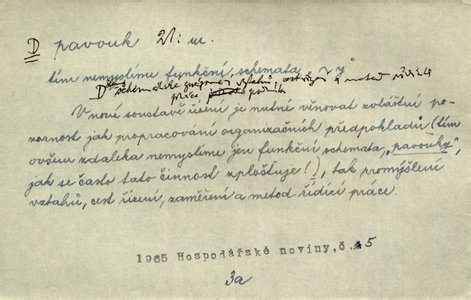 D pavouk 21: m.
tím nemyslíme funkční schemata
D schematické vztahů,
práce, podniku
V nové soustavě řízení je nutné věnovat zvláštní po-
zornost jak propracování organizačních předpokladů (tím
ovšem zdaleka nemyslíme jen funkční schemata, „pavouky",
jak se často tato činnost zplošťuje!), tak promýšlení
vztahů, cest řízení, zaměření a metod řídící práce.
1965 Hospodářské noviny, č. 45
3a